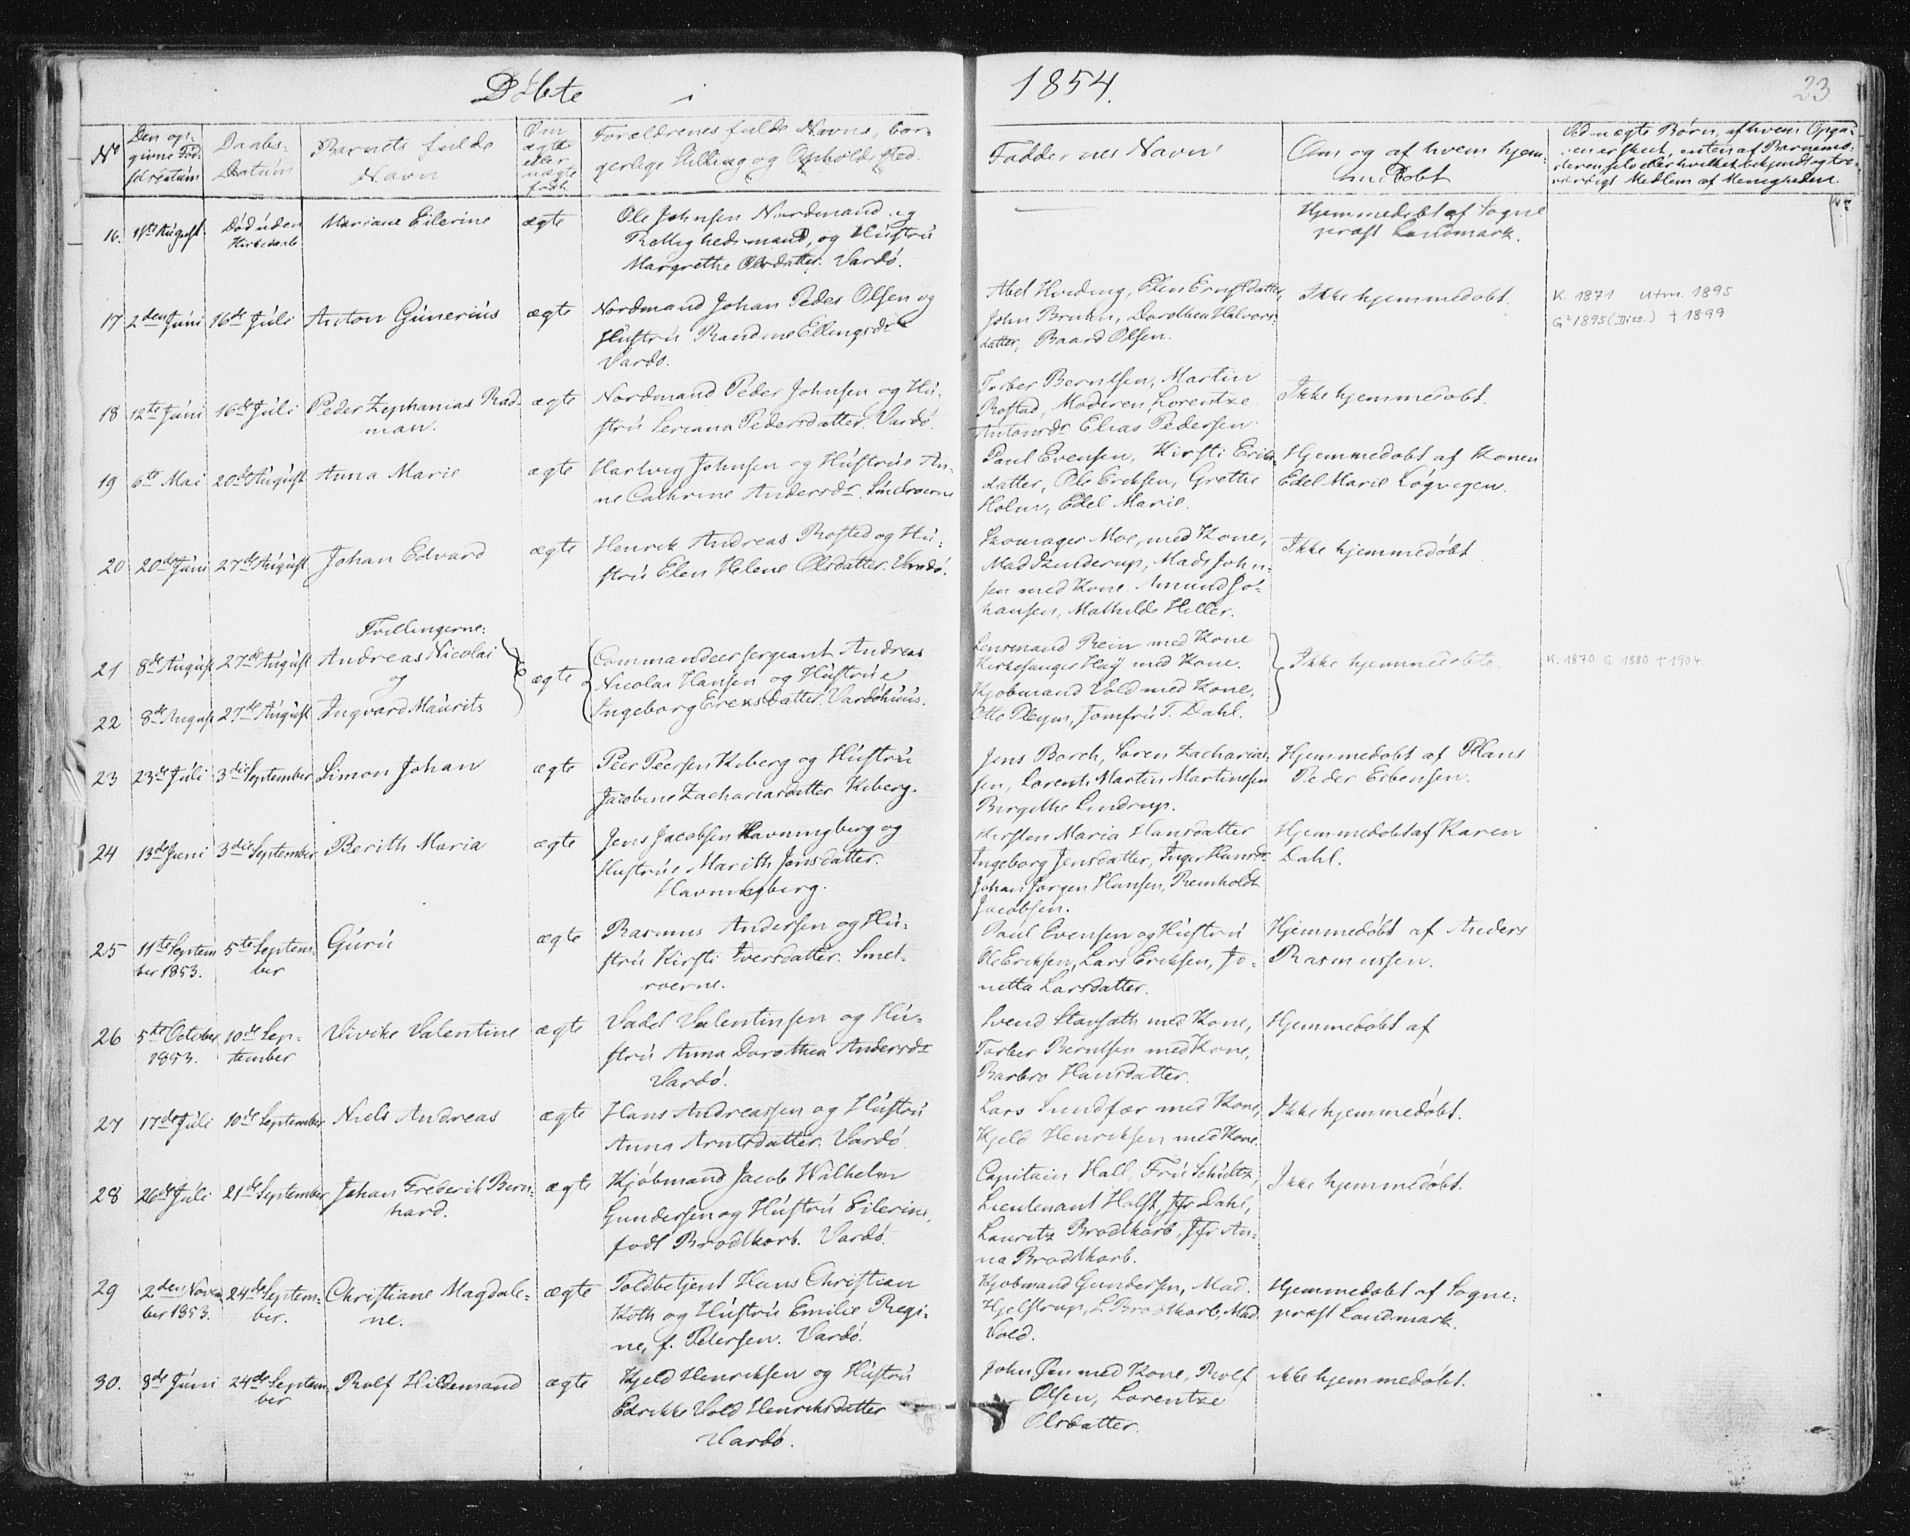 Döbte i 1854.
23
No
Den opgivne Födselsdatum
Daabs-Datum
Barnets fulde Navn
Om ægte eller uægte født
Forældrenes fulde Navne, borgerlige Stilling og Opholds Sted.
Faddernes Navn
Om og af hvem hjemmedöbt
Ved uægte Børn, af hvem Opga-
16. August Död uden Mariane Eilerine ægte Ole Johnsen Nordmand og
Rettighedsmand, og Hustru
Margrethe Olsdatter. Vardö.
Hjemmedöbt af Sogne
præst Landmark.
17 2den Juni 16de Juli Anton Gunerius ægte Nordmand Johan Peder Olsen og
Hustru Randine Ellingsdr
Vardö.
Abel Hveding, Elen Ernstdatter,
John Bruun, Dorothea Halvors
datter, Baard Olsen.
Ikke hjemmedöbt.
K. 1871 Utm. 1895
G 1895 (Diss.) † 1899
18 12te Juni 16de Juli Peder Zephanias Rad-
man. ægte Nordmand Peder Johnsen og Hu-
stru Seriana Pedersdatter. Vardö.
Torber Berntsen, Martin
Rostad, Moderen, Lorentze
Antonsdr Elias Pedersen.
Ikke hjemmedöbt.
19 6te Mai 20de August Anna Marie ægte Hartvig Johnsen og Hustrue An-
ne Cathrine Andersdr.
Paul Evensen, Kirsti Eriks
datter, Ole Eriksen, Grethe
Holm, Edel Marie.
Hjemmedöbt af Konen
Edel Marie Lögvigen.
20 20de Juni 27de August Johan Edvard ægte Henrik Andreas Rosted og Hu-
stru Elen Helene Olsdatter. Vardö.
Skomager Moe, med Kone,
Mad Mads John-
sen med Kone Amund Jo-
hansen, Mathilde Heller.
Ikke hjemmedöbt
Tvillingerne:
21 8de August 27de August Andreas Nicolai
og
22 8de August 27de August Ingvard Maurits
ægte Commandeersergeant Andreas
Nicolai Hansen og Hustrue
Ingeborg Eriksdatter. Vardöhuus.
Lensmand Rein med Kone
Kirkesanger Häÿ med Kone.
Kjöbmand Vold med Kone,
Otto Pleym, Jomfru T. Dahl.
Ikke hjemmedöbte.
K. 1870 G. 1880 † 1904
23 23de Juli 3die September Simon Johan ægte Peer Peersen Kiberg og Hustru
Jacobine Zachariasdatter Kiberg.
Jens Borch, Sören Zacharias-
sen, Lorents Martin Martinsen
Birgithe Lindrup.
Hjemmedöbt af
Peder Esbensen.
24 13de Juni 3die September Berith Maria ægte Jens Jacobsen Havningberg og
Hustrue Marith Jensdatter.
Havningberg.
Kirsten Maria Hansdatter
Ingeborg Jensdatter, Inger Hansdr
Johan Jörgen Hansen, Reinholdt
Jacobsen.
Hjemmedöbt af Karen
Dahl.
25 11te Septem
ber 1853. 5te Septem-
ber Guru ægte Rasmus Andersen og Hu-
stru Kirsti Iversdatter. Smel-
rorerne.
Paul Evensen og Hustru
Ole Eriksen, Lars Eriksen, Jo-
netta Larsdatter.
Hjemmedöbt af Anders
Rasmussen.
26 5te October
1853. 10de Sep-
tember Vivike Valentine ægte Vadel Valentinsen og Hu-
stru Anna Dorothea Andersdr
Vardö.
Svend Stavsath med Kone,
Torber Berntsen med Kone,
Barbro Hansdatter.
Hjemmedöbt af
27 17de Juli 10de September Niels Andreas ægte Hans Andreassen og Hustru
Anna Arntsdatter. Vardö
Lars Sundfær med Kone,
Kjeld Henriksen med Kone.
Ikke hjemmedöbt.
28 26de Juli 21de September Johan Frederik Bern-
hard. ægte Kjöbmand Jacob Wilhelm
Gundersen og Hustru Eilerine,
född Brodtkorb. Vardö.
Capitain Hall, Fru Schultz,
Lieutenant Holst, Jfr Dahl,
Lauritz Brodtkorb, Jfr An-
na Brodtkorb.
Ikke hjemmedöbt.
29 2den Novem
ber 1853. 24de Septem-
ber. Christiane Magdale-
ne. ægte Toldbetjent Hans Christian
Koth og Hustru Emilie Regi-
ne, f. Petersen. Vardö.
Kjöbmand Gundersen, Mad.
Hjelstrup, L. Brodtkorb, Mad.
Vold.
Hjemmedöbt af Sogne-
præst Landmark.
30. 8de Juni 24de Septem
ber Rolf Hildemand ægte Kjeld Henriksen og Hustru
Edrikke Vold Henriksdatter
Vardö.
John med Kone, Rolf
Olsen, Lorentze
Olsdatter.
ikke hjemmedöbt.